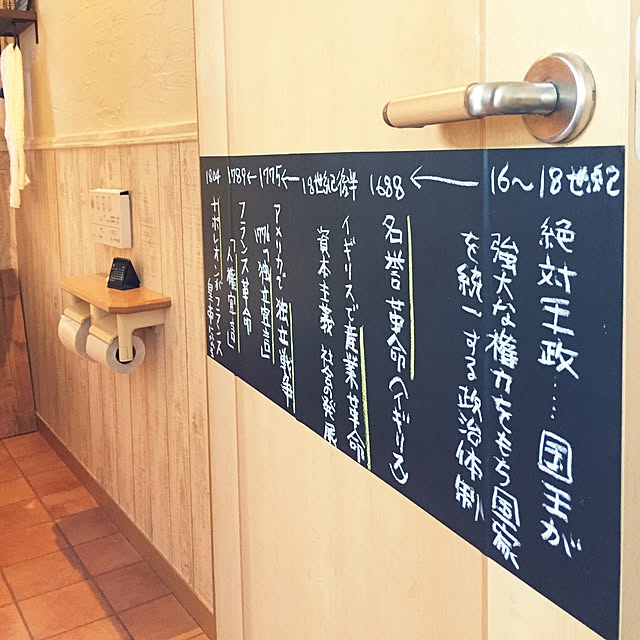 16〜18世紀
絶対王政…国王が
強大な権力をもち国家
を統一する政治体制
1688
名誉革命(イギリス)
18世紀後半
イギリスで産業革命
資本主義社会の発展
1775
アメリカで独立戦争
1776「独立宣言」
1789
フランス革命
「人権宣言」
1804
ナポレオンがフランス